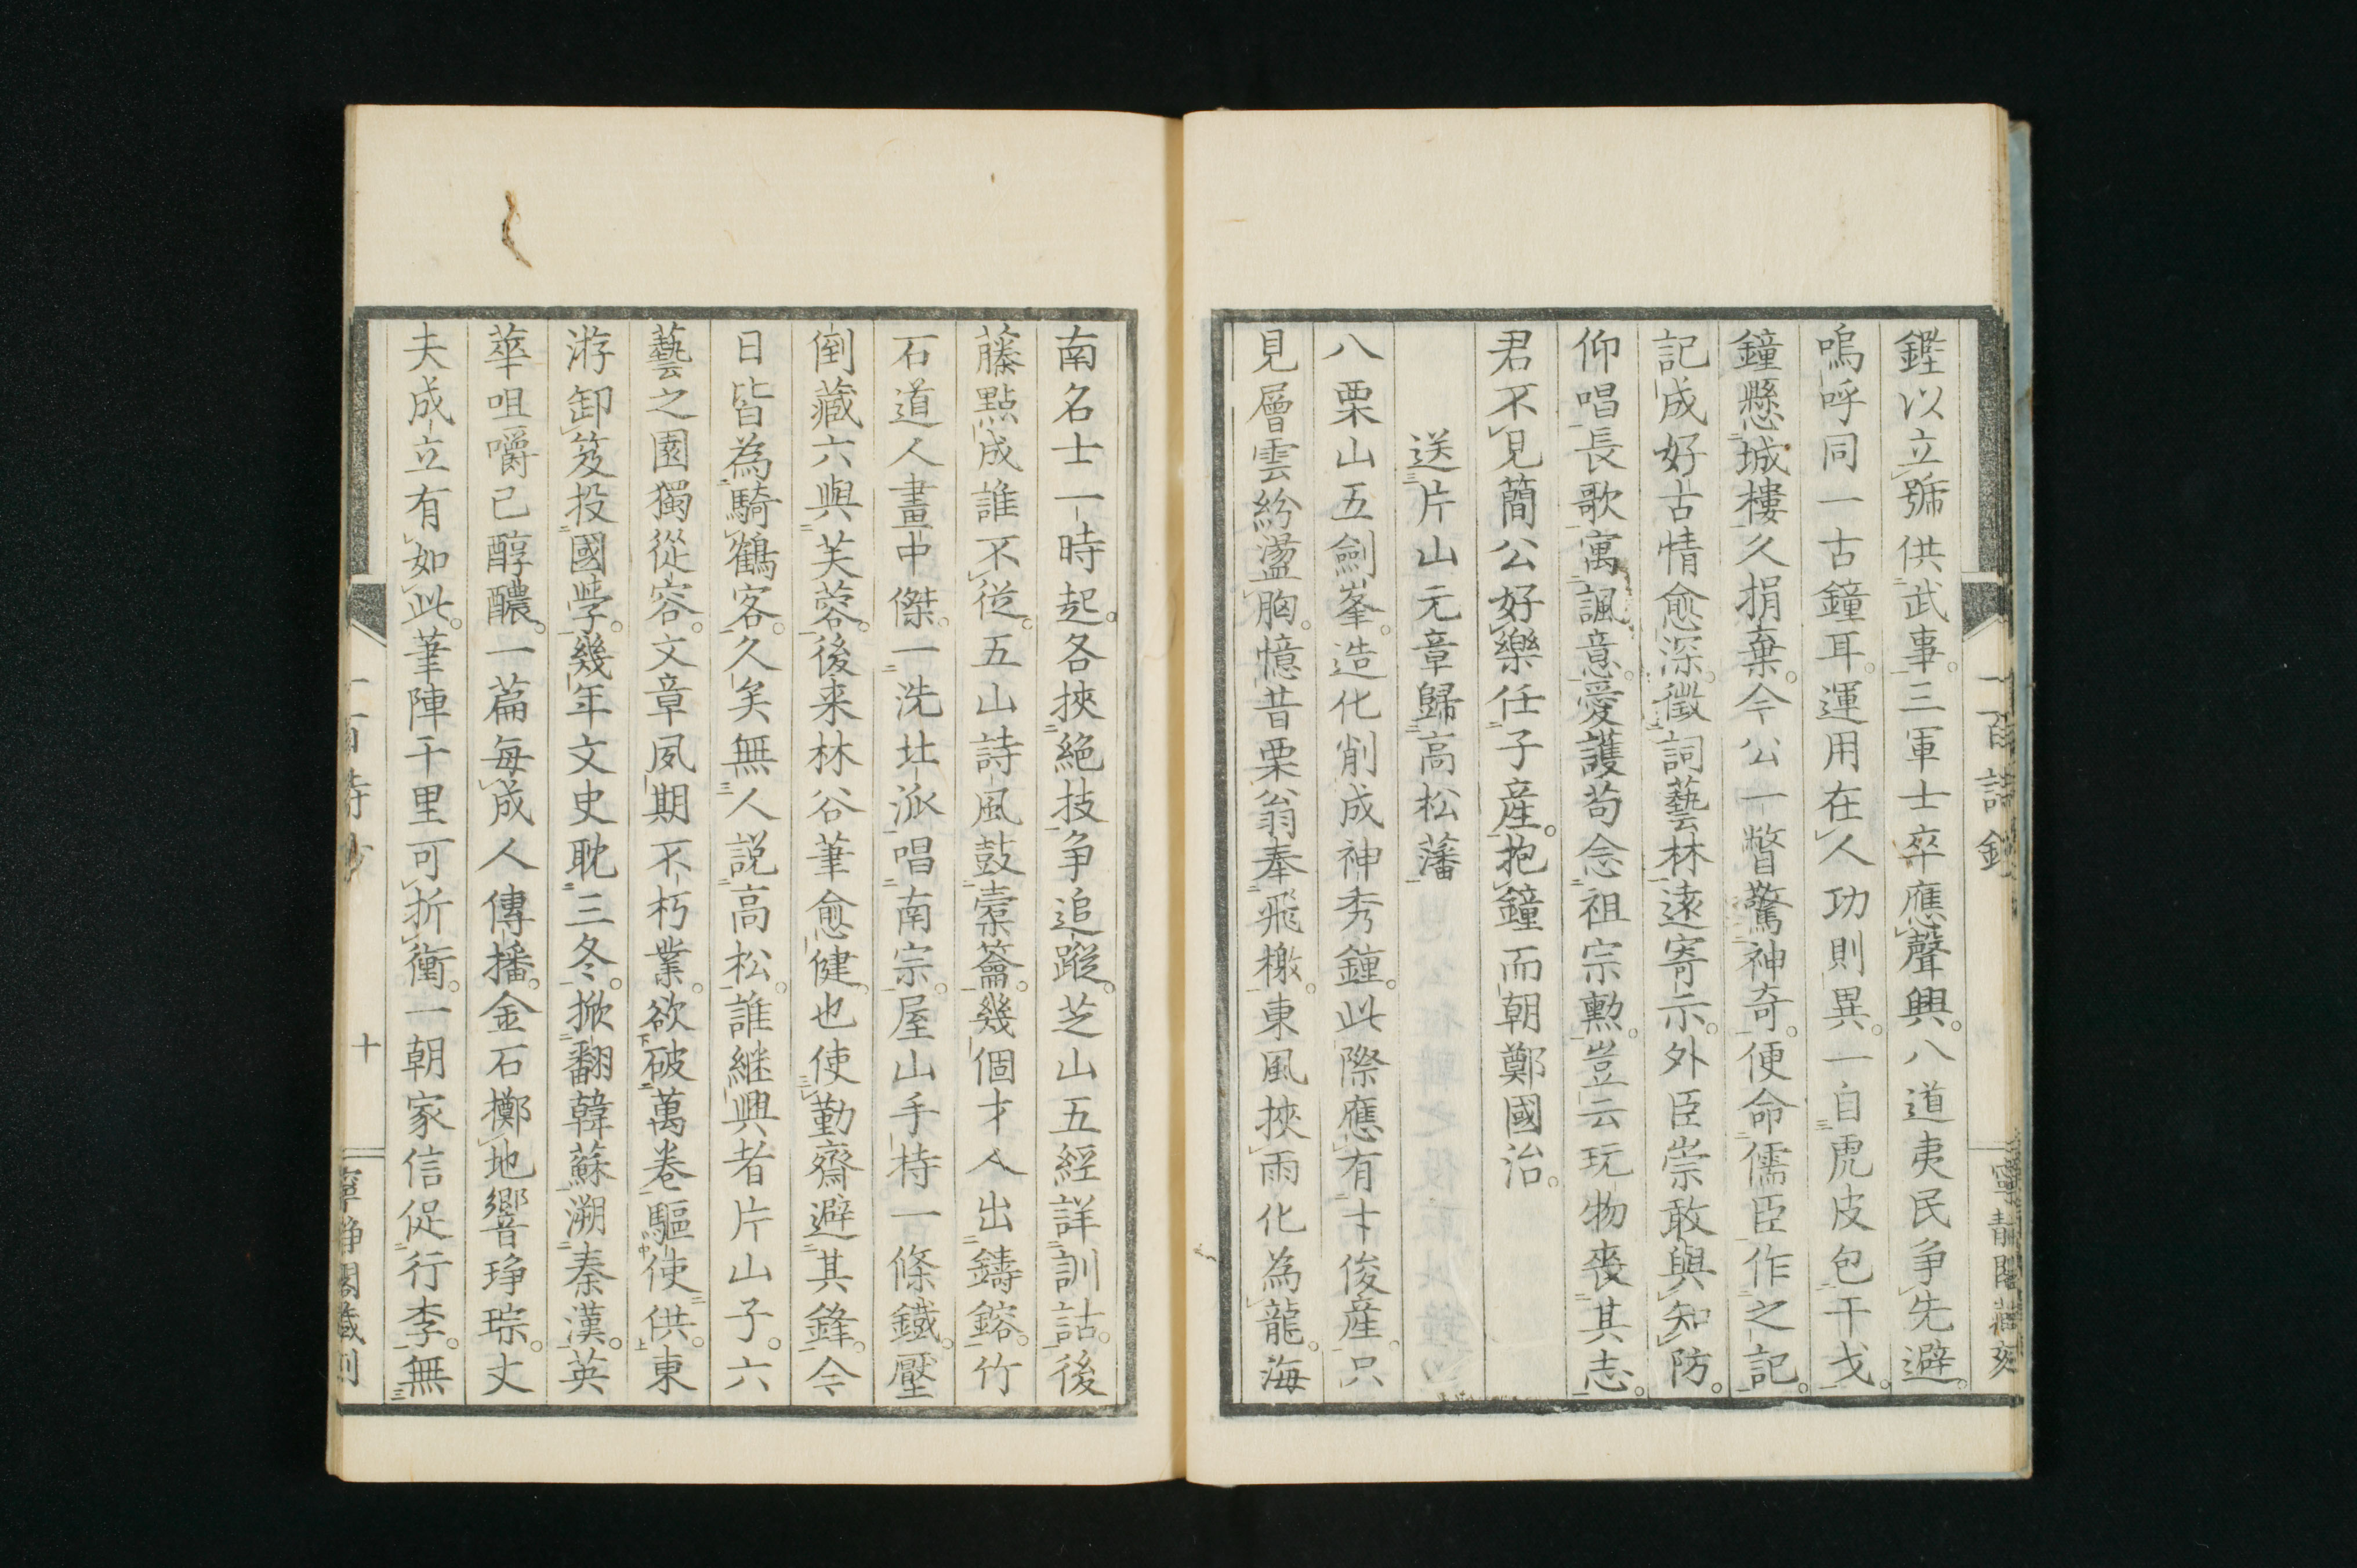 鏗以立號供武事。三軍士卒應聲興。八道夷民争先避。
嗚呼同一古鐘耳。運用在人功則異。一自虎皮包干戈。
鐘懸城樓久捐棄。今公一瞥驚神奇。便命儒臣作之記。
記成好古情愈深。徵詞藝林遠寄示。外臣崇敢與知防。
仰唱長歌寓諷意。愛護苟念祖宗勲。豈云玩物喪其志。
君不見簡公好樂任子產。抱鐘而朝鄭國治。
送片山元章歸高松藩
八栗山五劍峯。造化削成神秀鍾。此際應有才俊産。只
見層雲紛盪胸。憶昔栗翁奉飛檄。東風挾雨化為龍。海
南名士一時起。各挾絶技争追蹤。芝山五經詳訓詁。後
藤點成誰不從。五山詩風鼓槖籥。幾個才人出鑄鎔。竹
石道人畫中傑。一洗北派唱南宗。屋山手持一條鐵。壓
倒藏六與芙蓉。後来林谷筆愈健也使勤齋避其鋒。今
日皆為騎鶴客。久矣無人説高松。誰継興者片山子。六
藝之園獨從容。文章夙期不朽業。欲破萬卷驅使供。東
游卸笈投國學。幾年文史耽三冬。掀翻韓蘇溯秦漢。英
華咀嚼已醇醲。一篇每成人傳播。金石擲地響琤琮。丈
夫成立有如此。筆陣千里可折衝。一朝家信促行李。無
十
寧靜閣藏刻